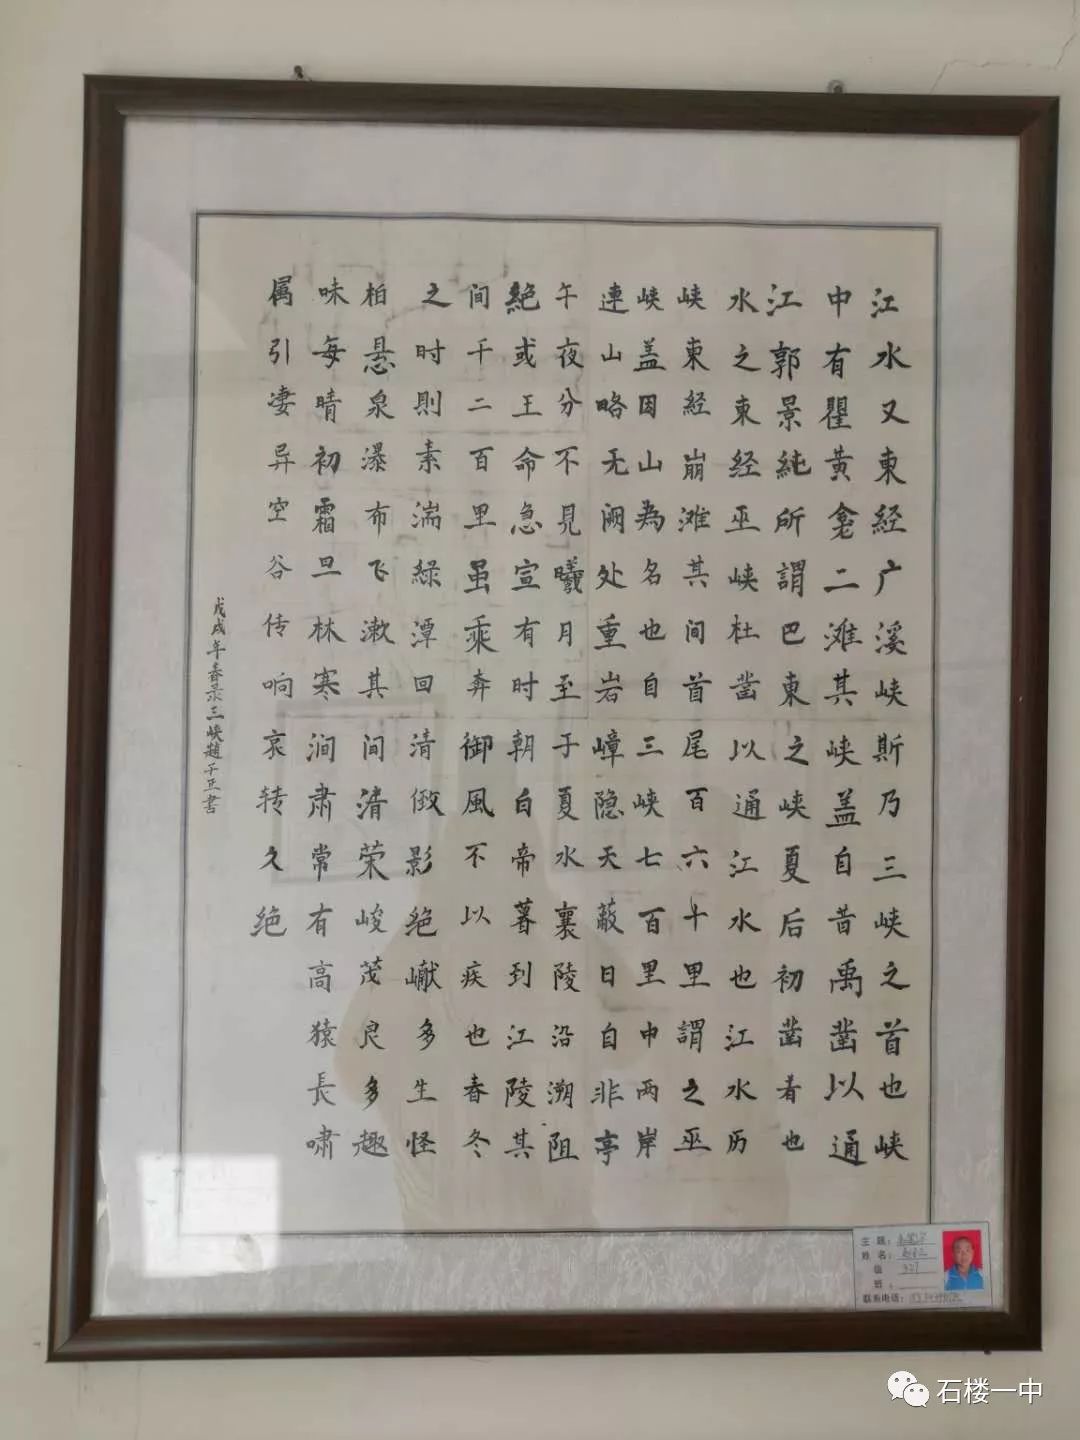 江水又東经广溪峡斯乃三峡之首也峡
中有瞿黄龛二滩其峡盖自昔禹凿以通
江郭景純所謂巴東之峡夏后初凿者也
水之東经巫峡杜凿以通江水也江水历
峡東经崩滩其间首尾百六十里謂之巫
峡盖因山為名也自三峡七百里中两岸
連山略无阙处重岩嶂隐天蔽日自非亭
午夜分不見曦月至于夏水襄陵沿溯阻
絶或王命急宣有时朝白帝暮到江陵其
间千二百里虽乘奔御風不以疾也春冬
之时則素湍綠潭回清倒影绝巘多生怪
柏悬泉瀑布飞漱其间清荣峻茂良多趣
味每晴初霜旦林寒涧肃常有高猿長啸
属引凄异空谷传响哀转久绝
戊戌年春录三峡趙子正書
主题：
姓名：
值
班：
联系电话：
石楼一中